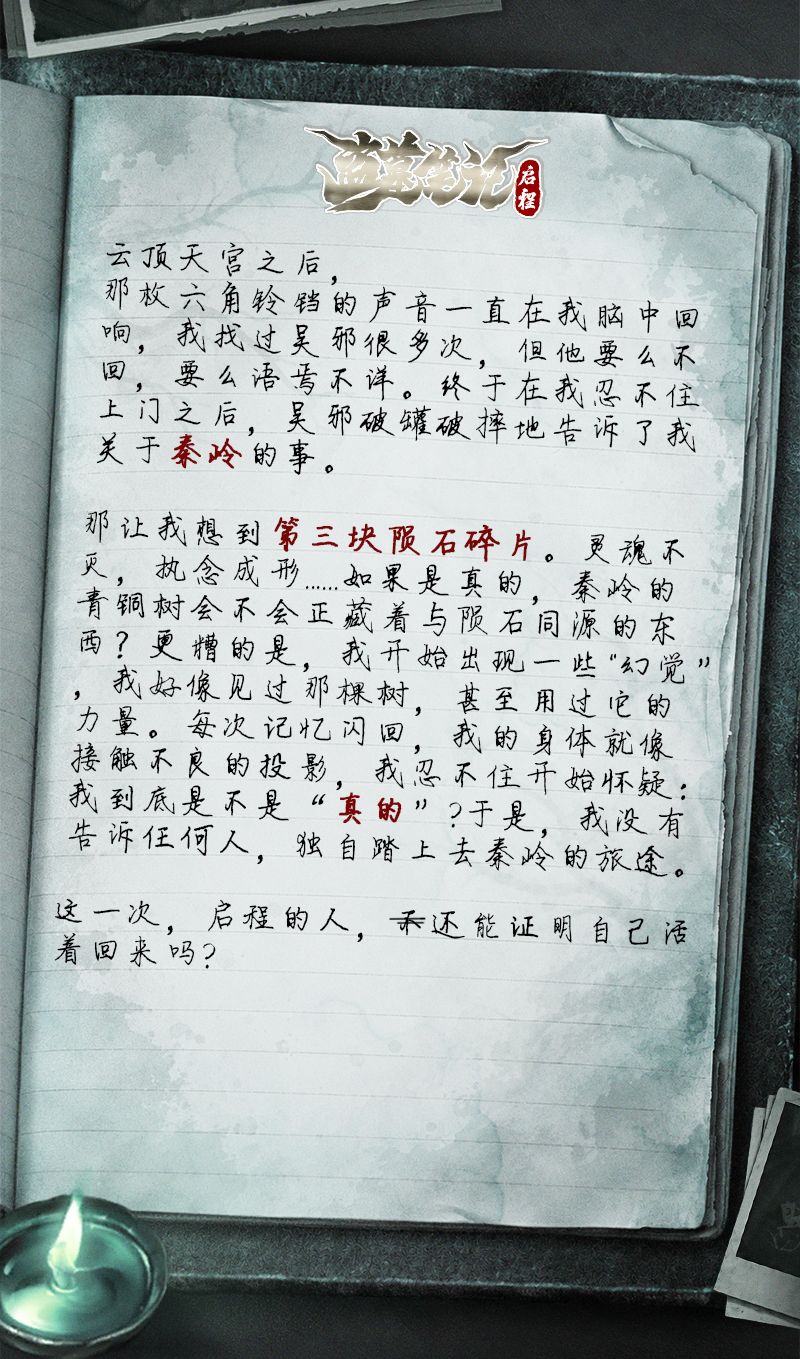 盗墓笔记
启程
云顶天宫之后，
那枚六角铃铛的声音一直在我脑中回
响，我找过吴邪很多次，但他要么不
回，要么语焉不详。终于在我忍不住
上门之后，吴邪破罐破摔地告诉了我
关于秦岭的事。
那让我想到第三块陨石碎片。灵魂不
灭，执念成形……如果是真的，秦岭的
青铜树会不会正藏着与陨石同源的东
西？更糟的是，我开始出现一些“幻觉”
，我好像见过那棵树，甚至用过它的
力量。每次记忆闪回，我的身体就像
接触不良的投影，我忍不住开始怀疑：
我到底是不是“真的”？于是，我没有
告诉任何人，独自踏上去秦岭的旅途。
这一次，启程的人，还能证明自己活
着回来吗？